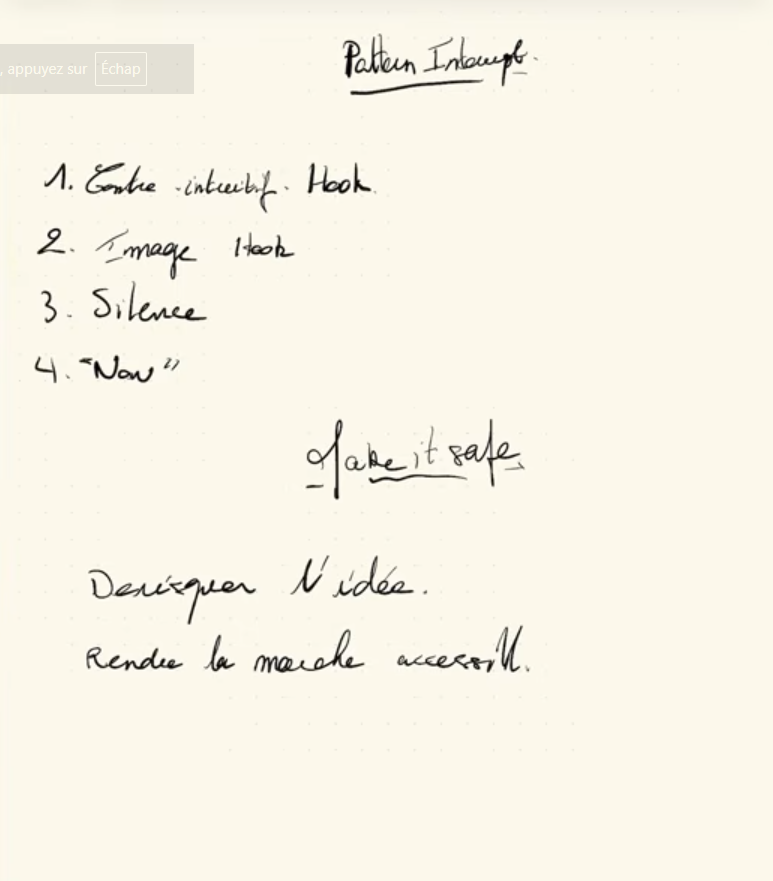 Pattern Interrupt.
, appuyez sur Échap
1. Contre-intuitif Hook.
2. Image Hook
3. Silence
4. "Now"
Make it safe
Derisquer l'idée.
Rendre la marche accessible.